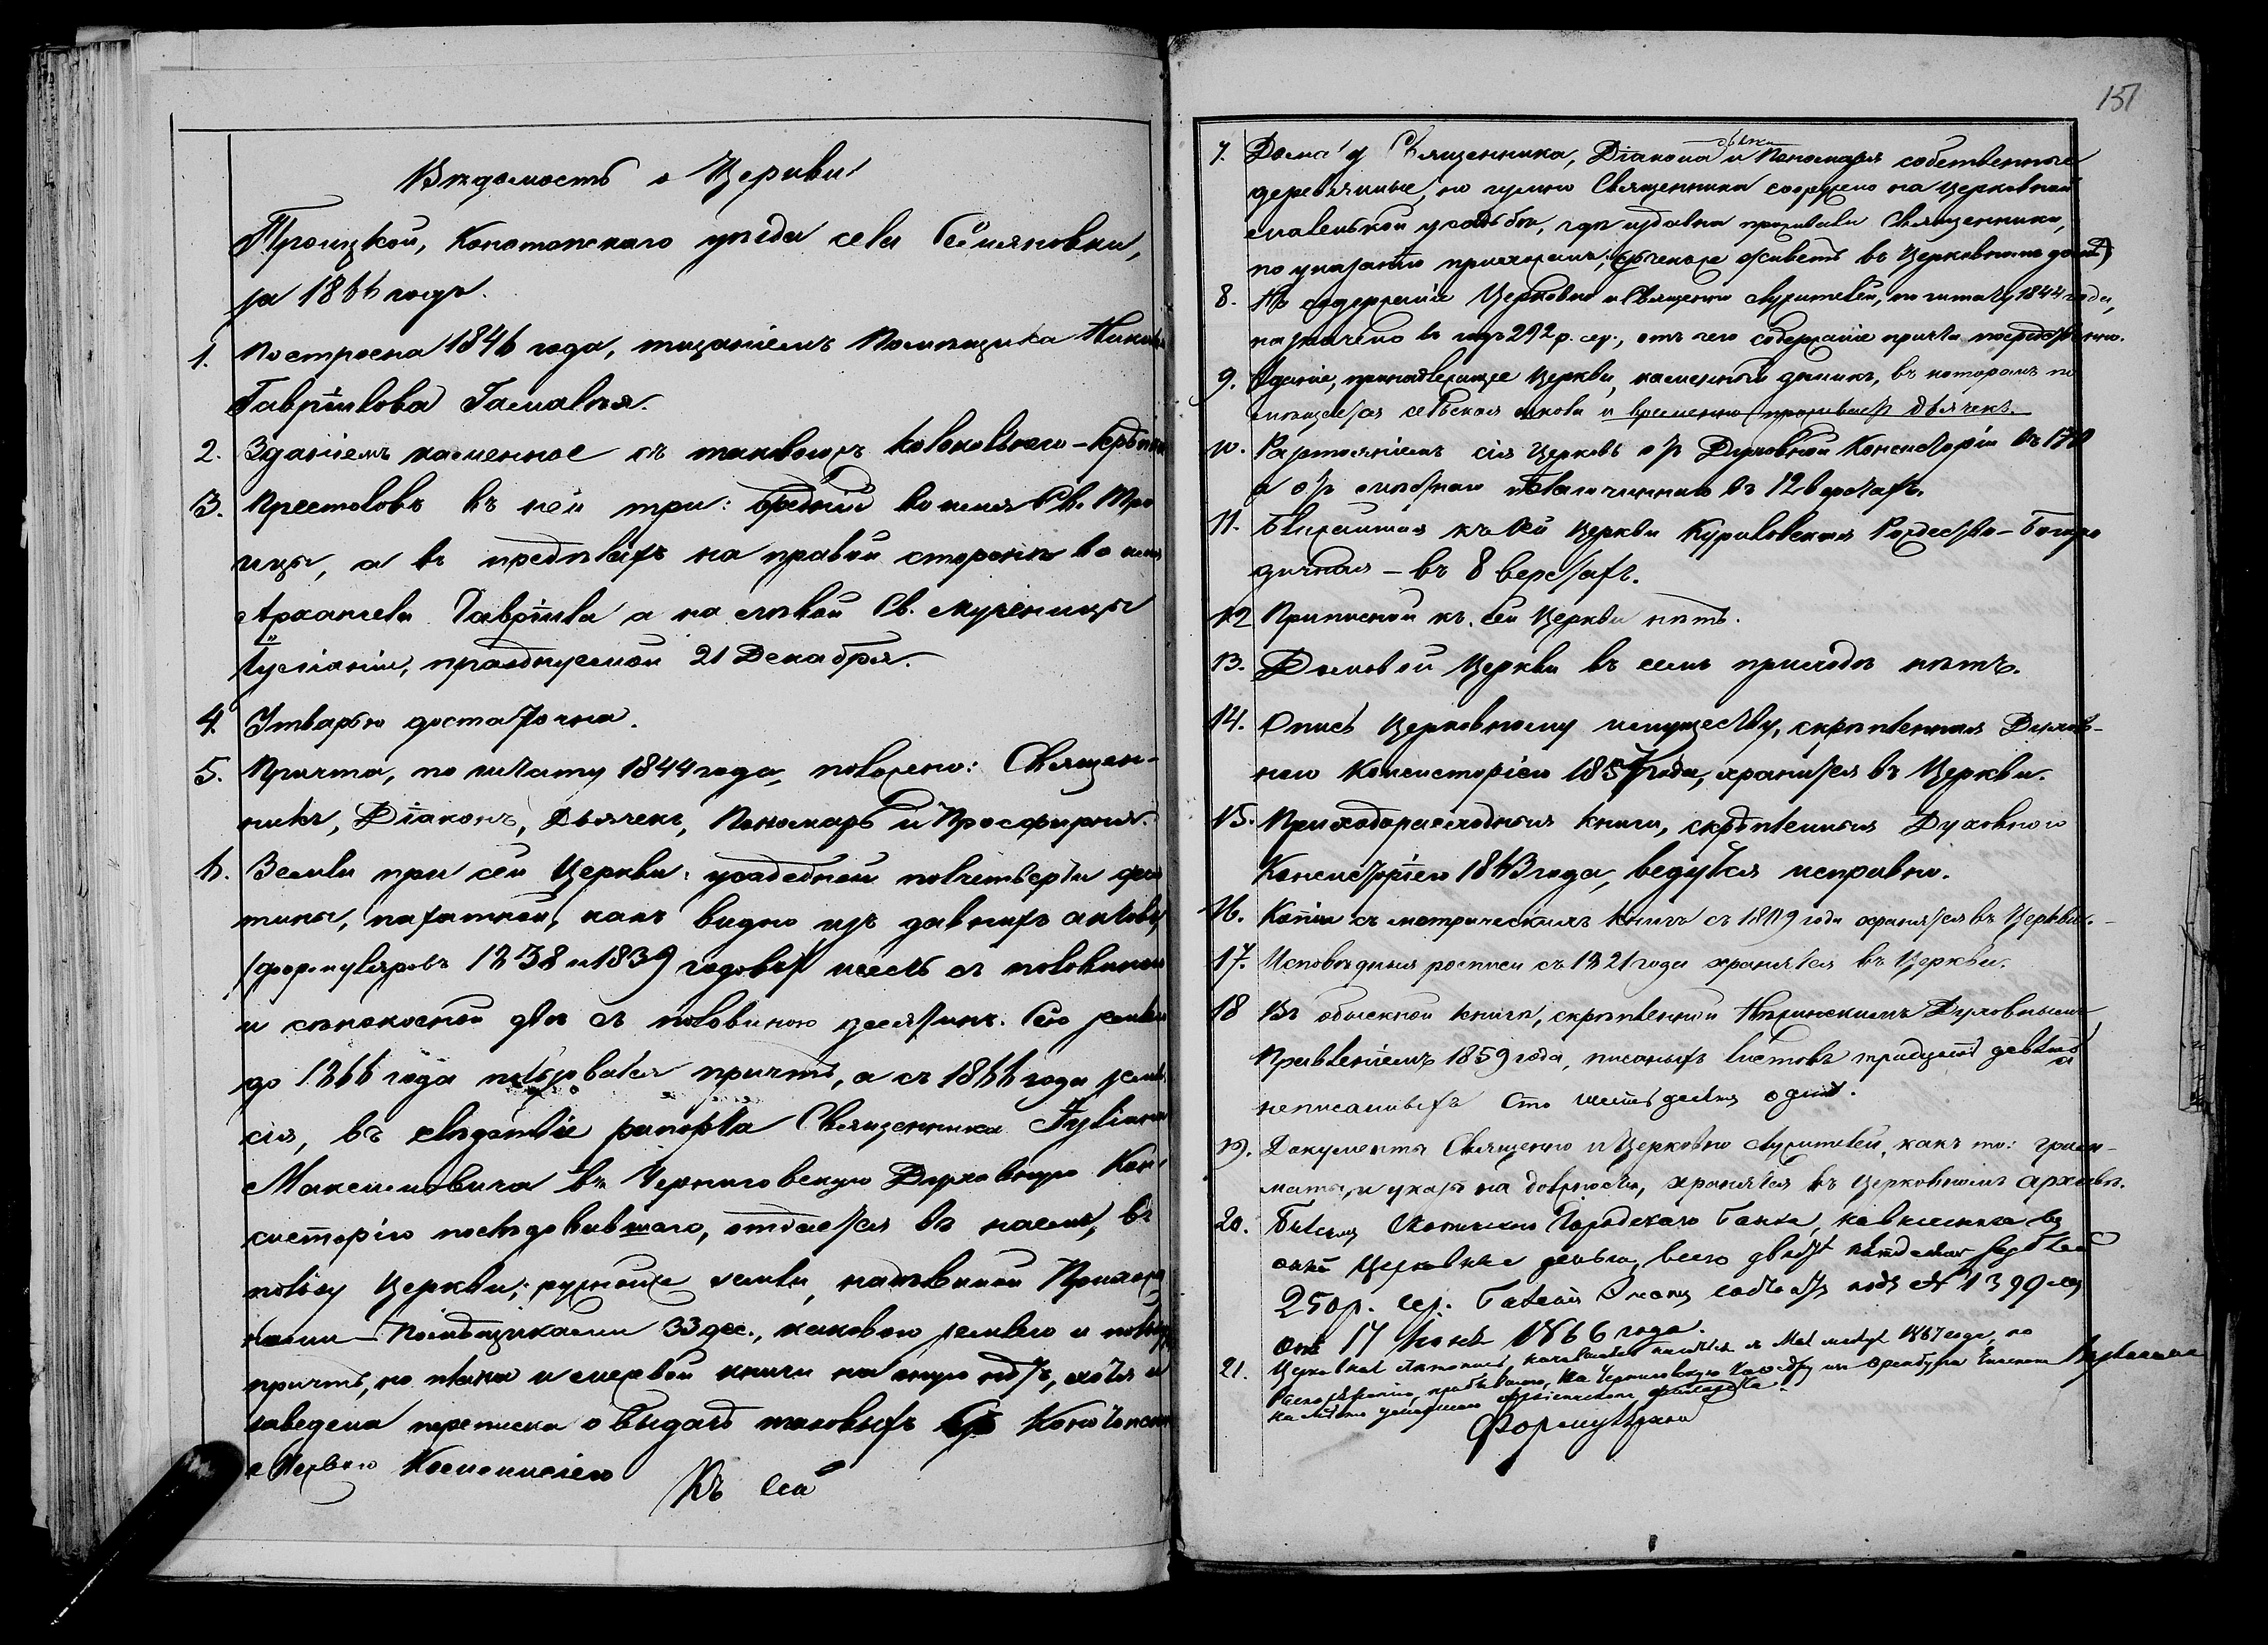 Вѣдомость о Церкви
Троицкой, Конотопскаго уѣзда села Семяновки,
за 1866 годъ.
1. Построена 1846 года, тщаніемъ Помѣщика
Гавріилова Гамалѣя.
2. Зданіемъ каменное съ таковою колокольнею –
3. Престоловъ въ ней три: средній во имя Св. Тро
ицы, а въ предѣлахъ на правой сторонѣ во имя
Архангела Гавріила а на лѣвой Св. Мученицы
Іуліаніи, празднуемой 21 Декабря.
4. Утварью достаточна.
5. Причта, по штату 1844 года, положено: Священ-
никъ, Діаконъ, Дьячекъ, Пономарь и Просфирня.
6. Земли при сей Церкви: усадебной полчетверти деся
тины, пахатной, какъ видно изъ давнихъ актовъ
/формуляровъ 1838 и 1839 годовъ/ шесть съ половиною
и сѣнокосной двѣ съ половиною десятинъ. Сею землею
до 1866 года пользовался причтъ, а съ 1866 года земля
сія, въ слѣдствіе рапорта Священника Іуліана
Максимовича въ Черниговскую Духовную Кон
систорію послѣдовавшаго, отдается въ наемъ, въ
пользу Церкви; ружной земли, надѣленной Прихожа
нами – Помѣщиками 33 дес., каковою землею и польз
причтъ, но плана и межевой книги на оную нѣтъ, хотя и
заведена переписка о выдачѣ таковыхъ съ Конотопскою
Межевою Коммиссіею
Къ сей
151
7. Дома у Священника, Діакона и Пономаря собственные
деревянные, но гумно Священника сооружено на церковной
маленькой усадьбѣ, гдѣ издавна проживали Священники,
по указанію прихожанъ; дьячекъ же живетъ въ Церковномъ домѣ
8. На содержаніе Церковно и Священно служителей, по штату 1844 года,
назначено въ годъ 292 р. сер., отъ чего содержаніе причта посредственно.
9. Зданіе, принадлежащее Церкви, каменный домикъ, въ которомъ по
мѣщается сельская школа и временно проживаетъ дьячекъ.
10. Разстояніемъ сія Церковь отъ Духовной Консисторіи въ 170
а отъ мѣстнаго благочиннаго въ 12 верстахъ.
11. Ближайшая къ сей Церкви Куриловская Рождество-Богоро
дичная – въ 8 верстахъ.
12 Приписной къ сей Церкви нѣтъ.
13. Домовой Церкви въ семъ приходѣ нѣтъ.
14. Опись Церковному имуществу, скрѣпленная Духов-
ною Консисторіею 1857 года, хранится въ Церкви.
15. Приходорасходныя книги, скрѣпленныя Духовною
Консисторіею 1863 года, ведутся исправно.
16. Копіи съ метрическихъ книгъ съ 1809 года хранятся въ Церкви.
17. Исповѣдныя росписи съ 1821 года хранятся въ Церкви.
18 Въ обыскной книгѣ, скрѣпленной Нѣжинскимъ Духовнымъ
Правленіемъ 1859 года, писаныхъ листовъ тридцать девять а
неписанныхъ сто шестьдесятъ одинъ.
19. Документы Священно и Церковно служителей, какъ то: грам-
маты, и указъ на должности, хранятся въ Церковномъ архивѣ.
20. Билетъ Городскаго Банка,
Церковные деньги, всего двѣсти пятьдесятъ рублей
250 р. сер. Билетъ подъ № 1399
17 Іюня 1866 года.
21. Церковная лѣтопись, 1867 года, по
Формулярная